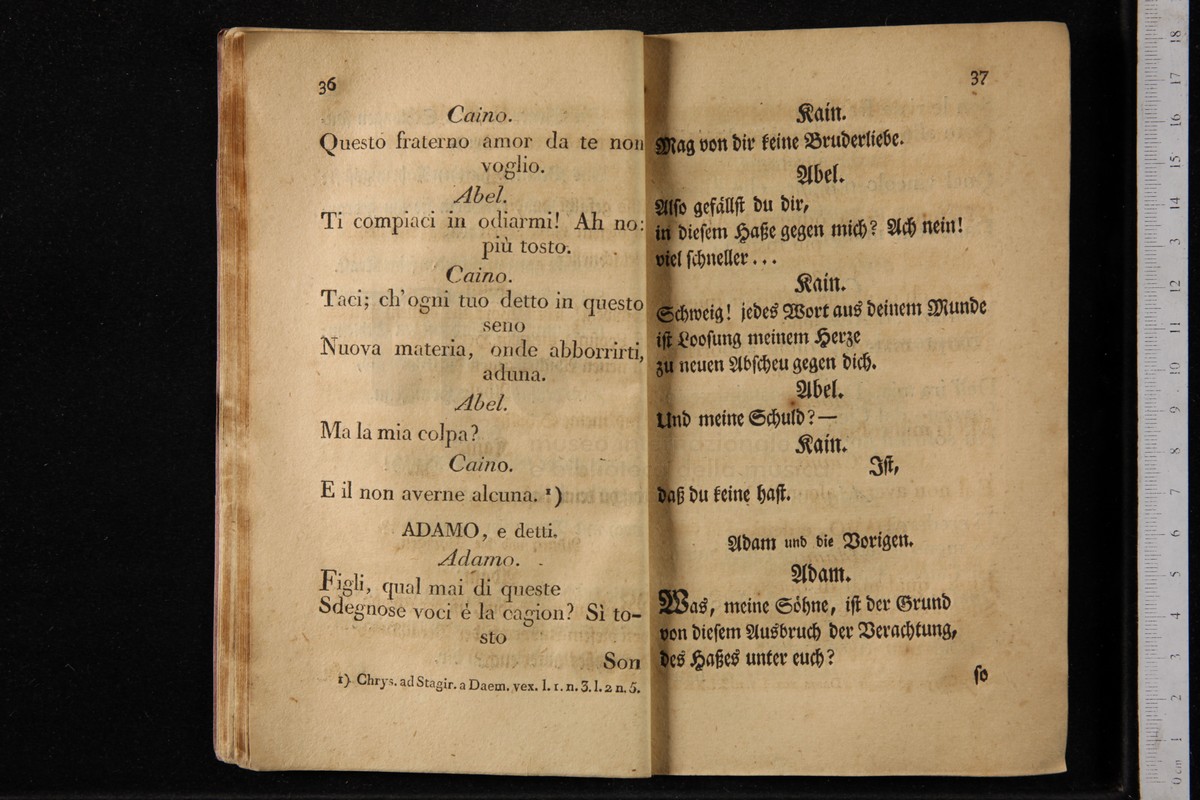 36
Caino.
Questo fraterno amor da te non
voglio.
Abel.
Ti compiaci in odiarmi! Ah no:
più tosto.
Caino.
Taci; ch'ogni tuo detto in questo
seno
Nuova materia, onde abborrirti,
aduna.
Abel.
Ma la mia colpa?
Caino.
E il non averne alcuna. 1)
ADAMO, e detti.
Adamo.
Figli, qual mai di queste
Sdegnose voci é la cagion? Sì to-
sto
Son
1) Chrys. ad Stagir. a Daem. vex. l. 1. n. 3. l. 2 n. 5.
37
Kain.
Mag von dir keine Bruderliebe.
Abel.
Also gefällst du dir,
in diesem Haße gegen mich? Ach nein!
viel schneller...
Kain.
Schweig! jedes Wort aus deinem Munde
ist Loosung meinem Herze
zu neuen Abscheu gegen dich.
Abel.
Und meine Schuld?—
Kain.
Ist,
daß du keine hast.
Adam und die Vorigen.
Adam.
Was, meine Söhne, ist der Grund
von diesem Ausbruch der Verachtung,
des Haßes unter euch?
so
0 cm 1 2 3 4 5 6 7 8 9 10 11 12 13 14 15 16 17 18